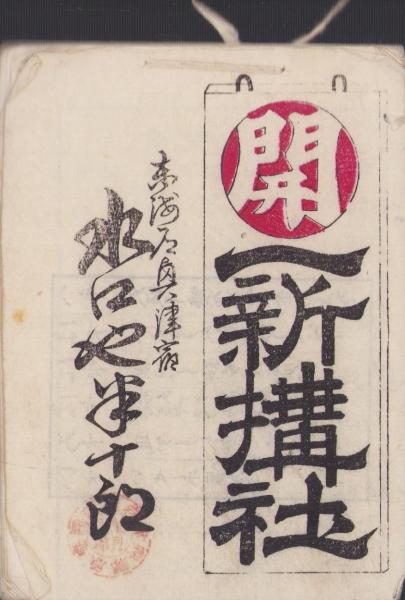 開
一新講社
東海道奥津宿
水口屋半十郎